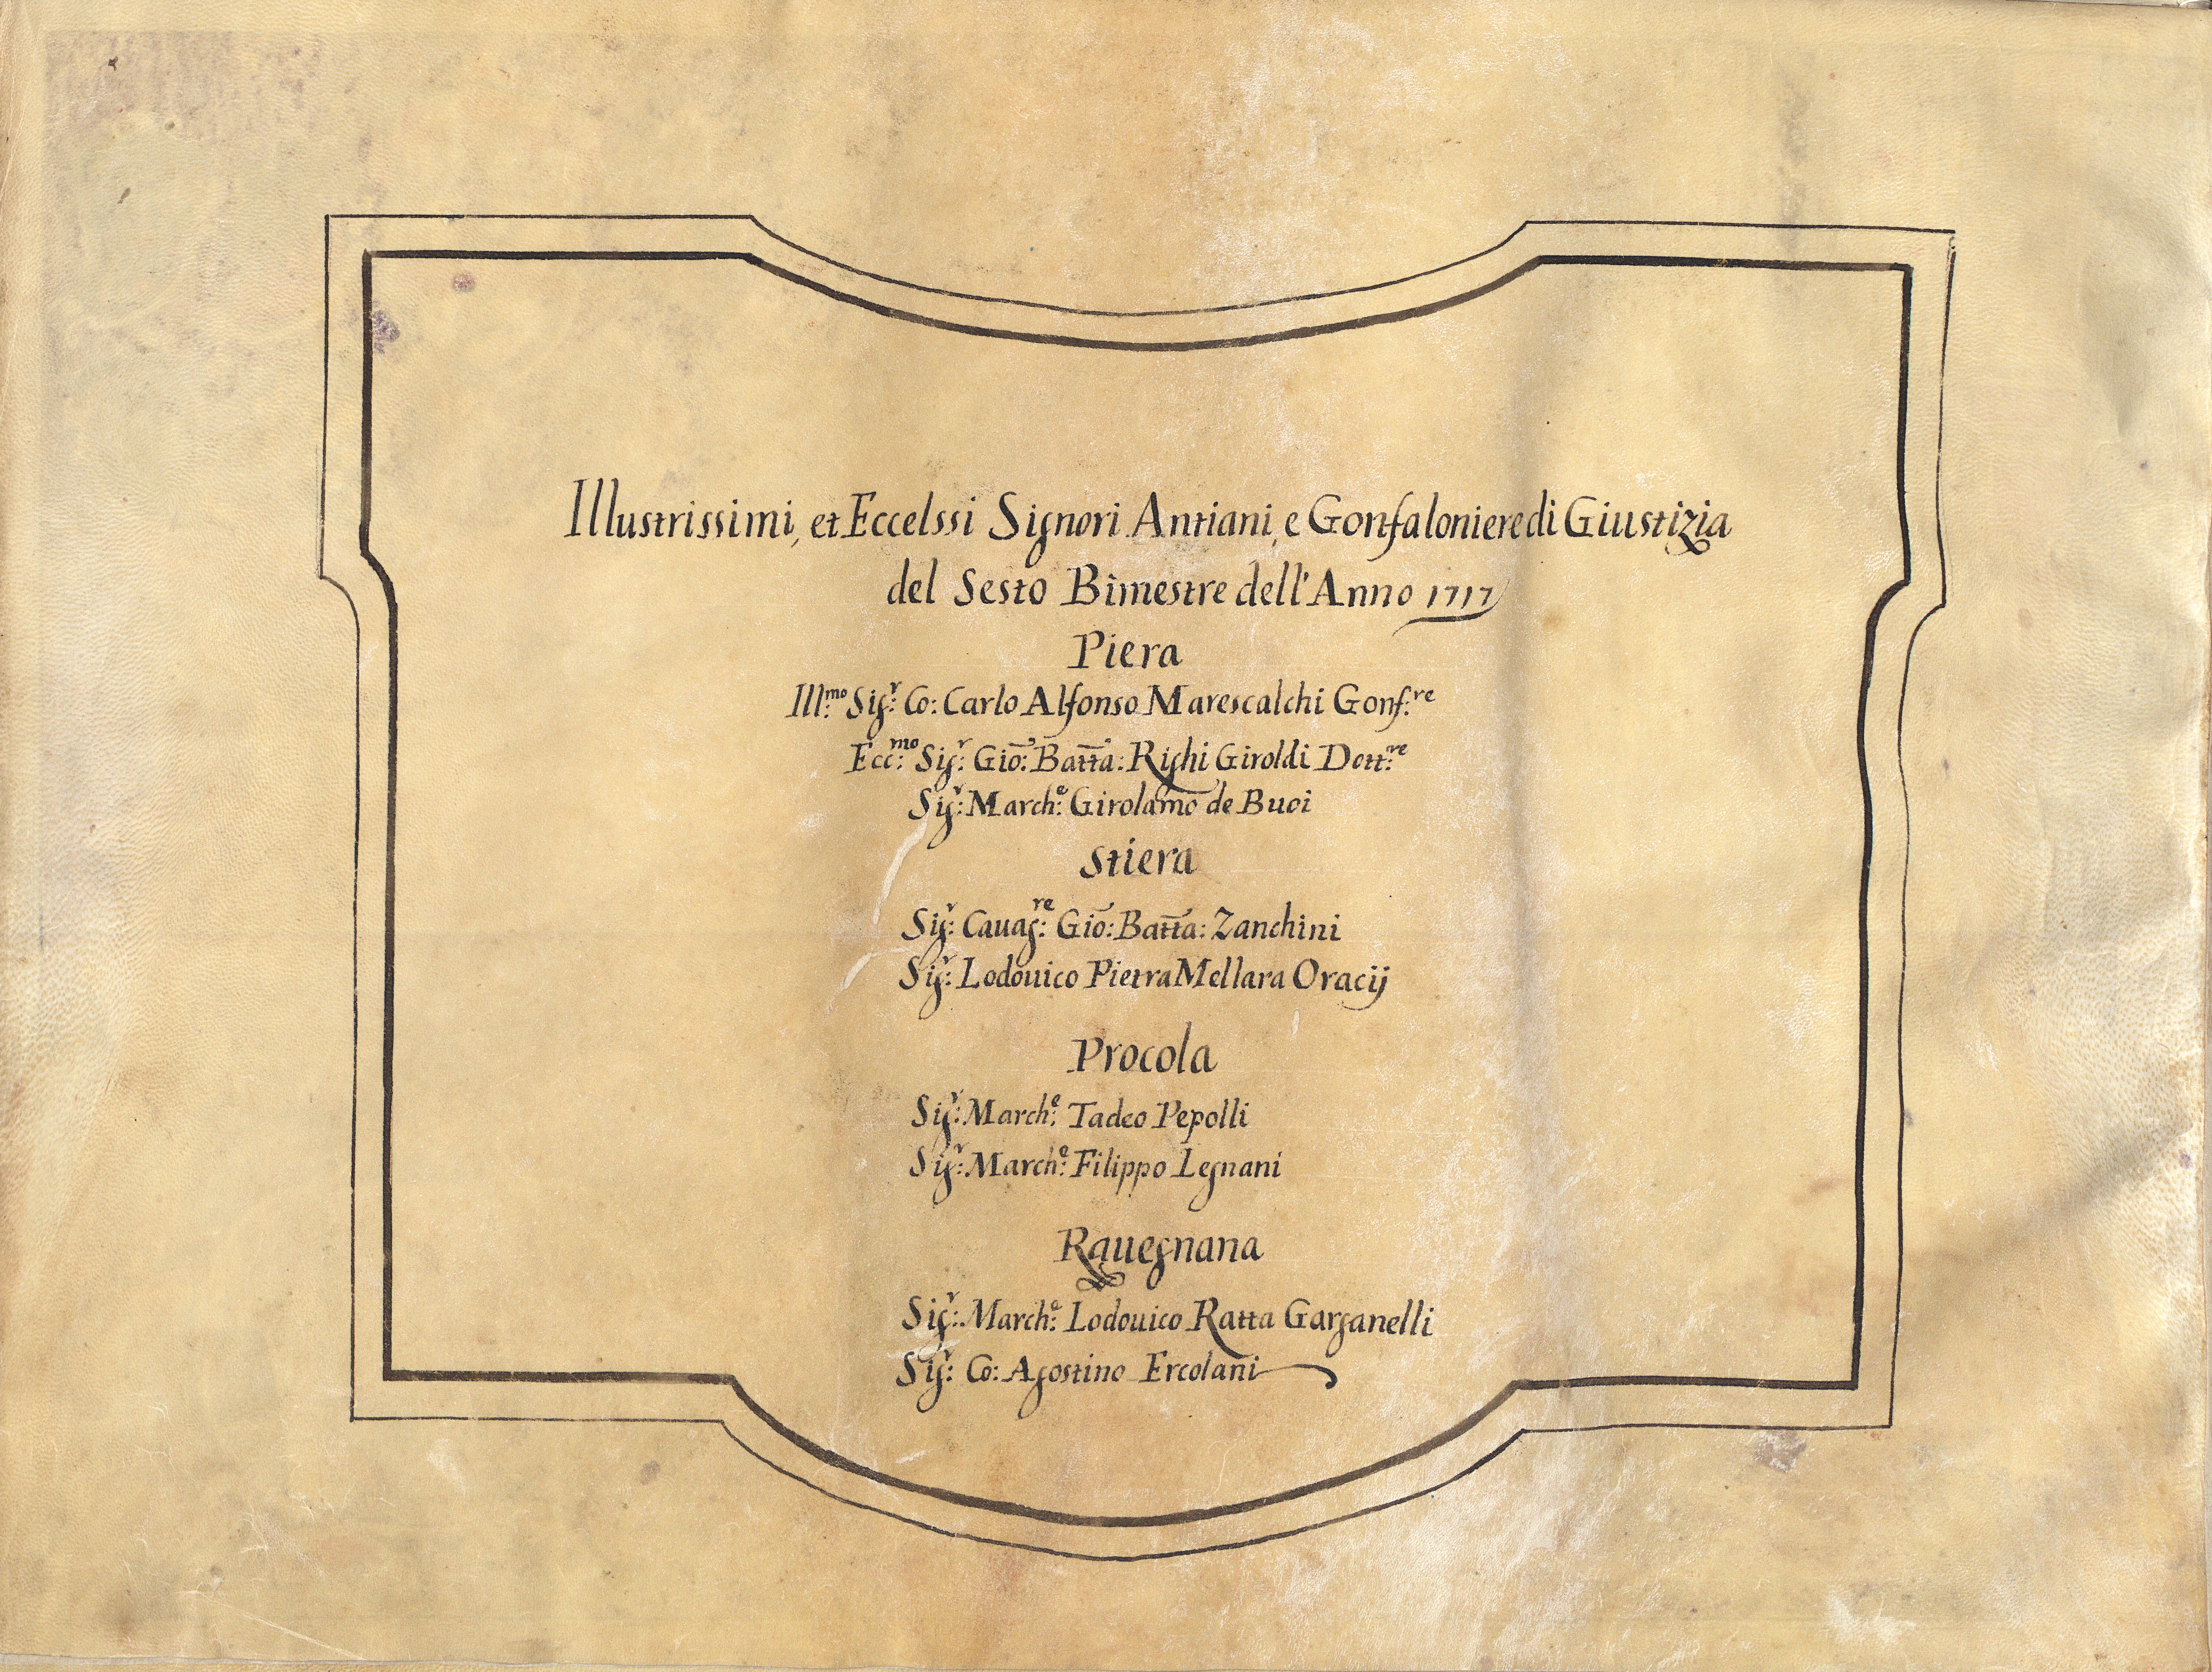 Illustrissimi, et Eccelssi Signori Antiani, e Gonfaloniere di Giustizia
del Sesto Bimestre dell'Anno 1717
Piera
Ill:mo Sig:r Co: Carlo Alfonso Marescalchi Gonf:re
Ecc:mo Sig:r Gio: Batta: Righi Giroldi Dott:re
Sig:r March:e Girolamo de Buoi
Stiera
Sig:r Cauag:re Gio: Batta: Zanchini
Sig:r Lodouico Pietra Mellara Oracij
Procola
Sig:r March:e Tadeo Pepolli
Sig:r March:e Filippo Legnani
Rauegnana
Sig:r March:e Lodouico Ratta Garganelli
Sig:r Co: Agostino Ercolani